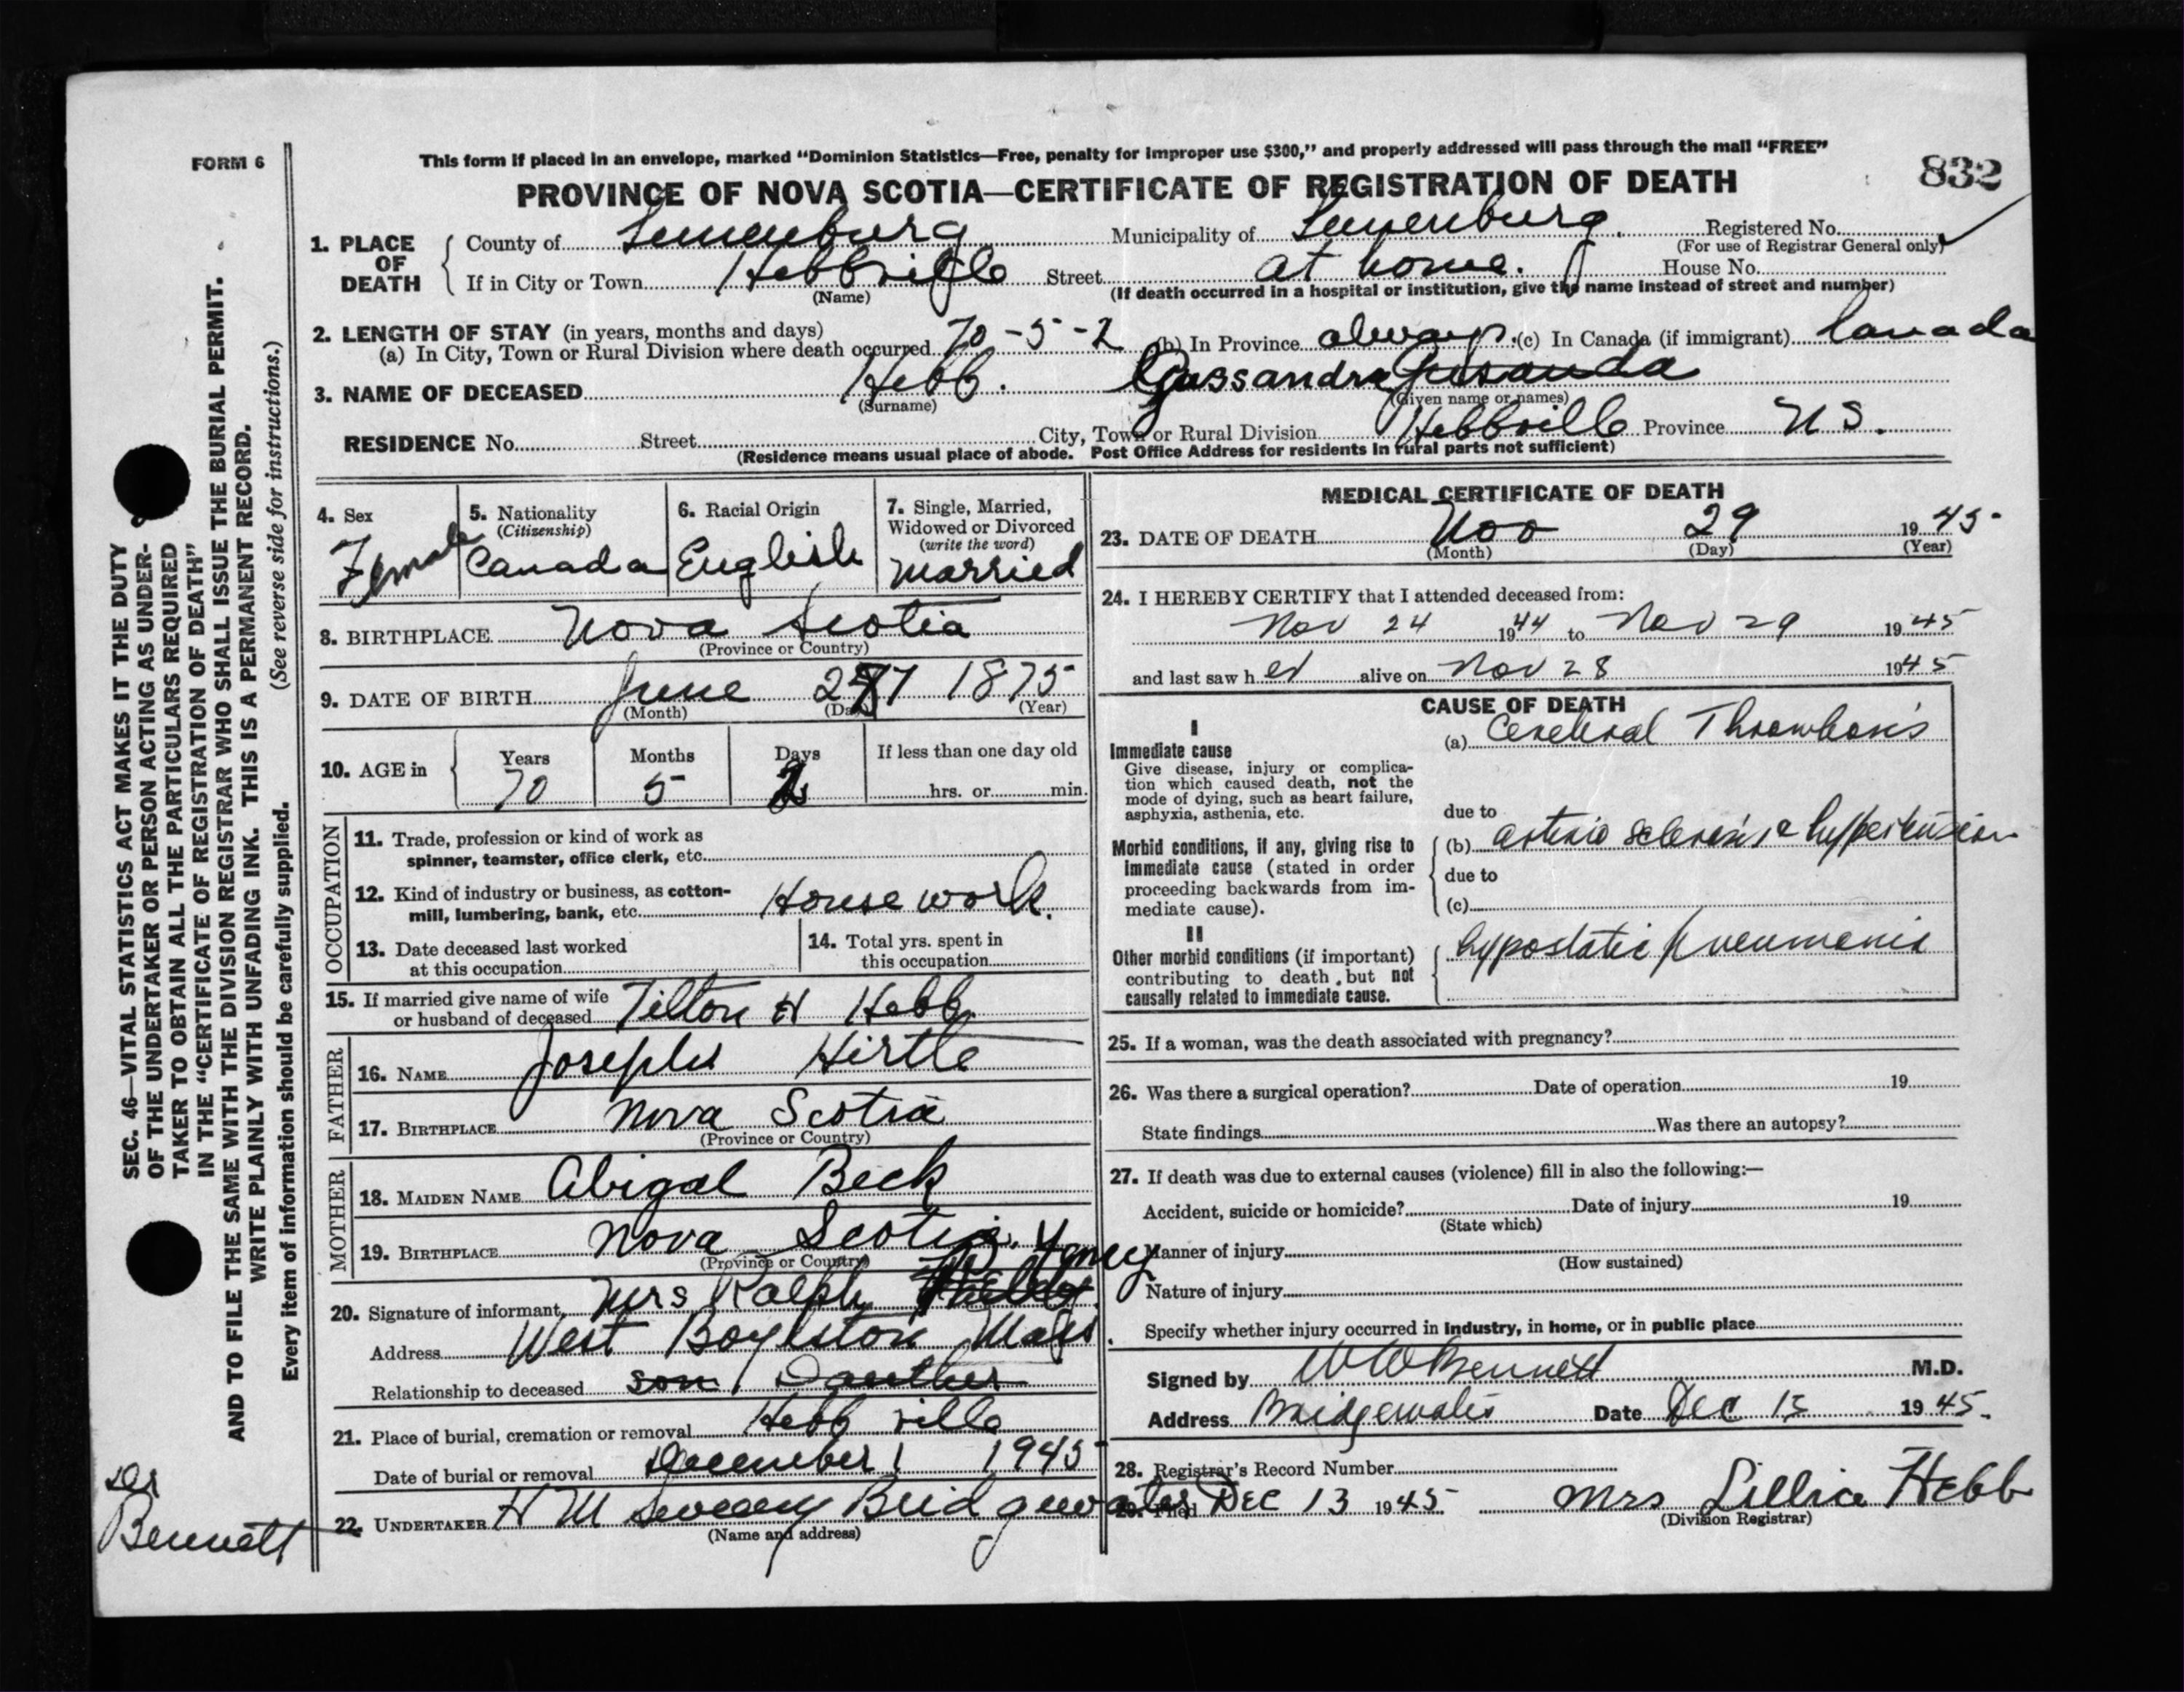 FORM 6
This form if placed in an envelope, marked "Dominion Statistics—Free, penalty for improper use $300," and properly addressed will pass through the mail "FREE"
832
PROVINCE OF NOVA SCOTIA—CERTIFICATE OF REGISTRATION OF DEATH
1. PLACE OF DEATH
County of Lunenburg Municipality of Lunenburg. Registered No.
(For use of Registrar General only)
If in City or Town Hebbville Street at home. House No.
(Name) (If death occurred in a hospital or institution, give the name instead of street and number)
2. LENGTH OF STAY (in years, months and days)
(a) In City, Town or Rural Division where death occurred 70-5-2 (b) In Province always. (c) In Canada (if immigrant) Canada
3. NAME OF DECEASED Hebb. Cassandra
(Surname) (Given name or names)
RESIDENCE No. Street City, Town or Rural Division Hebbville Province N S.
(Residence means usual place of abode. Post Office Address for residents in rural parts not sufficient)
4. Sex
Female
5. Nationality
(Citizenship)
Canada
6. Racial Origin
English
7. Single, Married,
Widowed or Divorced
(write the word)
Married
8. BIRTHPLACE Nova Scotia
(Province or Country)
9. DATE OF BIRTH June 27 1875
(Month) (Day) (Year)
10. AGE in
Years Months Days If less than one day old
70 5 2 hrs. or min.
OCCUPATION
11. Trade, profession or kind of work as
spinner, teamster, office clerk, etc.
12. Kind of industry or business, as cotton-
mill, lumbering, bank, etc. House work.
13. Date deceased last worked
at this occupation
14. Total yrs. spent in
this occupation
15. If married give name of wife
or husband of deceased Tilton H Hebb.
FATHER
16. NAME Joseph Hirtle
17. BIRTHPLACE Nova Scotia
(Province or Country)
MOTHER
18. MAIDEN NAME Abigal Beck
19. BIRTHPLACE Nova Scotia.
(Province or Country)
20. Signature of informant Mrs Ralph
Address West Boylston Mass.
Relationship to deceased son Dauther
21. Place of burial, cremation or removal Hebbville
Date of burial or removal December 1 1945
22. UNDERTAKER H M Bridgewater
(Name and address)
MEDICAL CERTIFICATE OF DEATH
23. DATE OF DEATH Nov 29 1945
(Month) (Day) (Year)
24. I HEREBY CERTIFY that I attended deceased from:
Nov 24 1944 to Nov 29 1945
and last saw her alive on Nov 28 1945
CAUSE OF DEATH
I
Immediate cause
Give disease, injury or complica-
tion which caused death, not the
mode of dying, such as heart failure,
asphyxia, asthenia, etc.
(a) Cerebral Thrombosis
due to
Morbid conditions, if any, giving rise to
immediate cause (stated in order
proceeding backwards from im-
mediate cause).
(b) arterio sclerosis c hypertension
due to
(c)
II
Other morbid conditions (if important)
contributing to death, but not
causally related to immediate cause.
hypostatic pneumonia
25. If a woman, was the death associated with pregnancy?
26. Was there a surgical operation? Date of operation 19
State findings Was there an autopsy?
27. If death was due to external causes (violence) fill in also the following:—
Accident, suicide or homicide? Date of injury 19
(State which)
Manner of injury
(How sustained)
Nature of injury
Specify whether injury occurred in industry, in home, or in public place
Signed by W W Bennett M.D.
Address Bridgewater Date Dec 15 1945.
28. Registrar's Record Number
29. Filed Dec 13 1945 Mrs Lillia Hebb
(Division Registrar)
SEC. 46—VITAL STATISTICS ACT MAKES IT THE DUTY
OF THE UNDERTAKER OR PERSON ACTING AS UNDER-
TAKER TO OBTAIN ALL THE PARTICULARS REQUIRED
IN THE "CERTIFICATE OF REGISTRATION OF DEATH"
AND TO FILE THE SAME WITH THE DIVISION REGISTRAR WHO SHALL ISSUE THE BURIAL PERMIT.
WRITE PLAINLY WITH UNFADING INK. THIS IS A PERMANENT RECORD.
(See reverse side for instructions.)
Every item of information should be carefully supplied.
Dr
Bennett